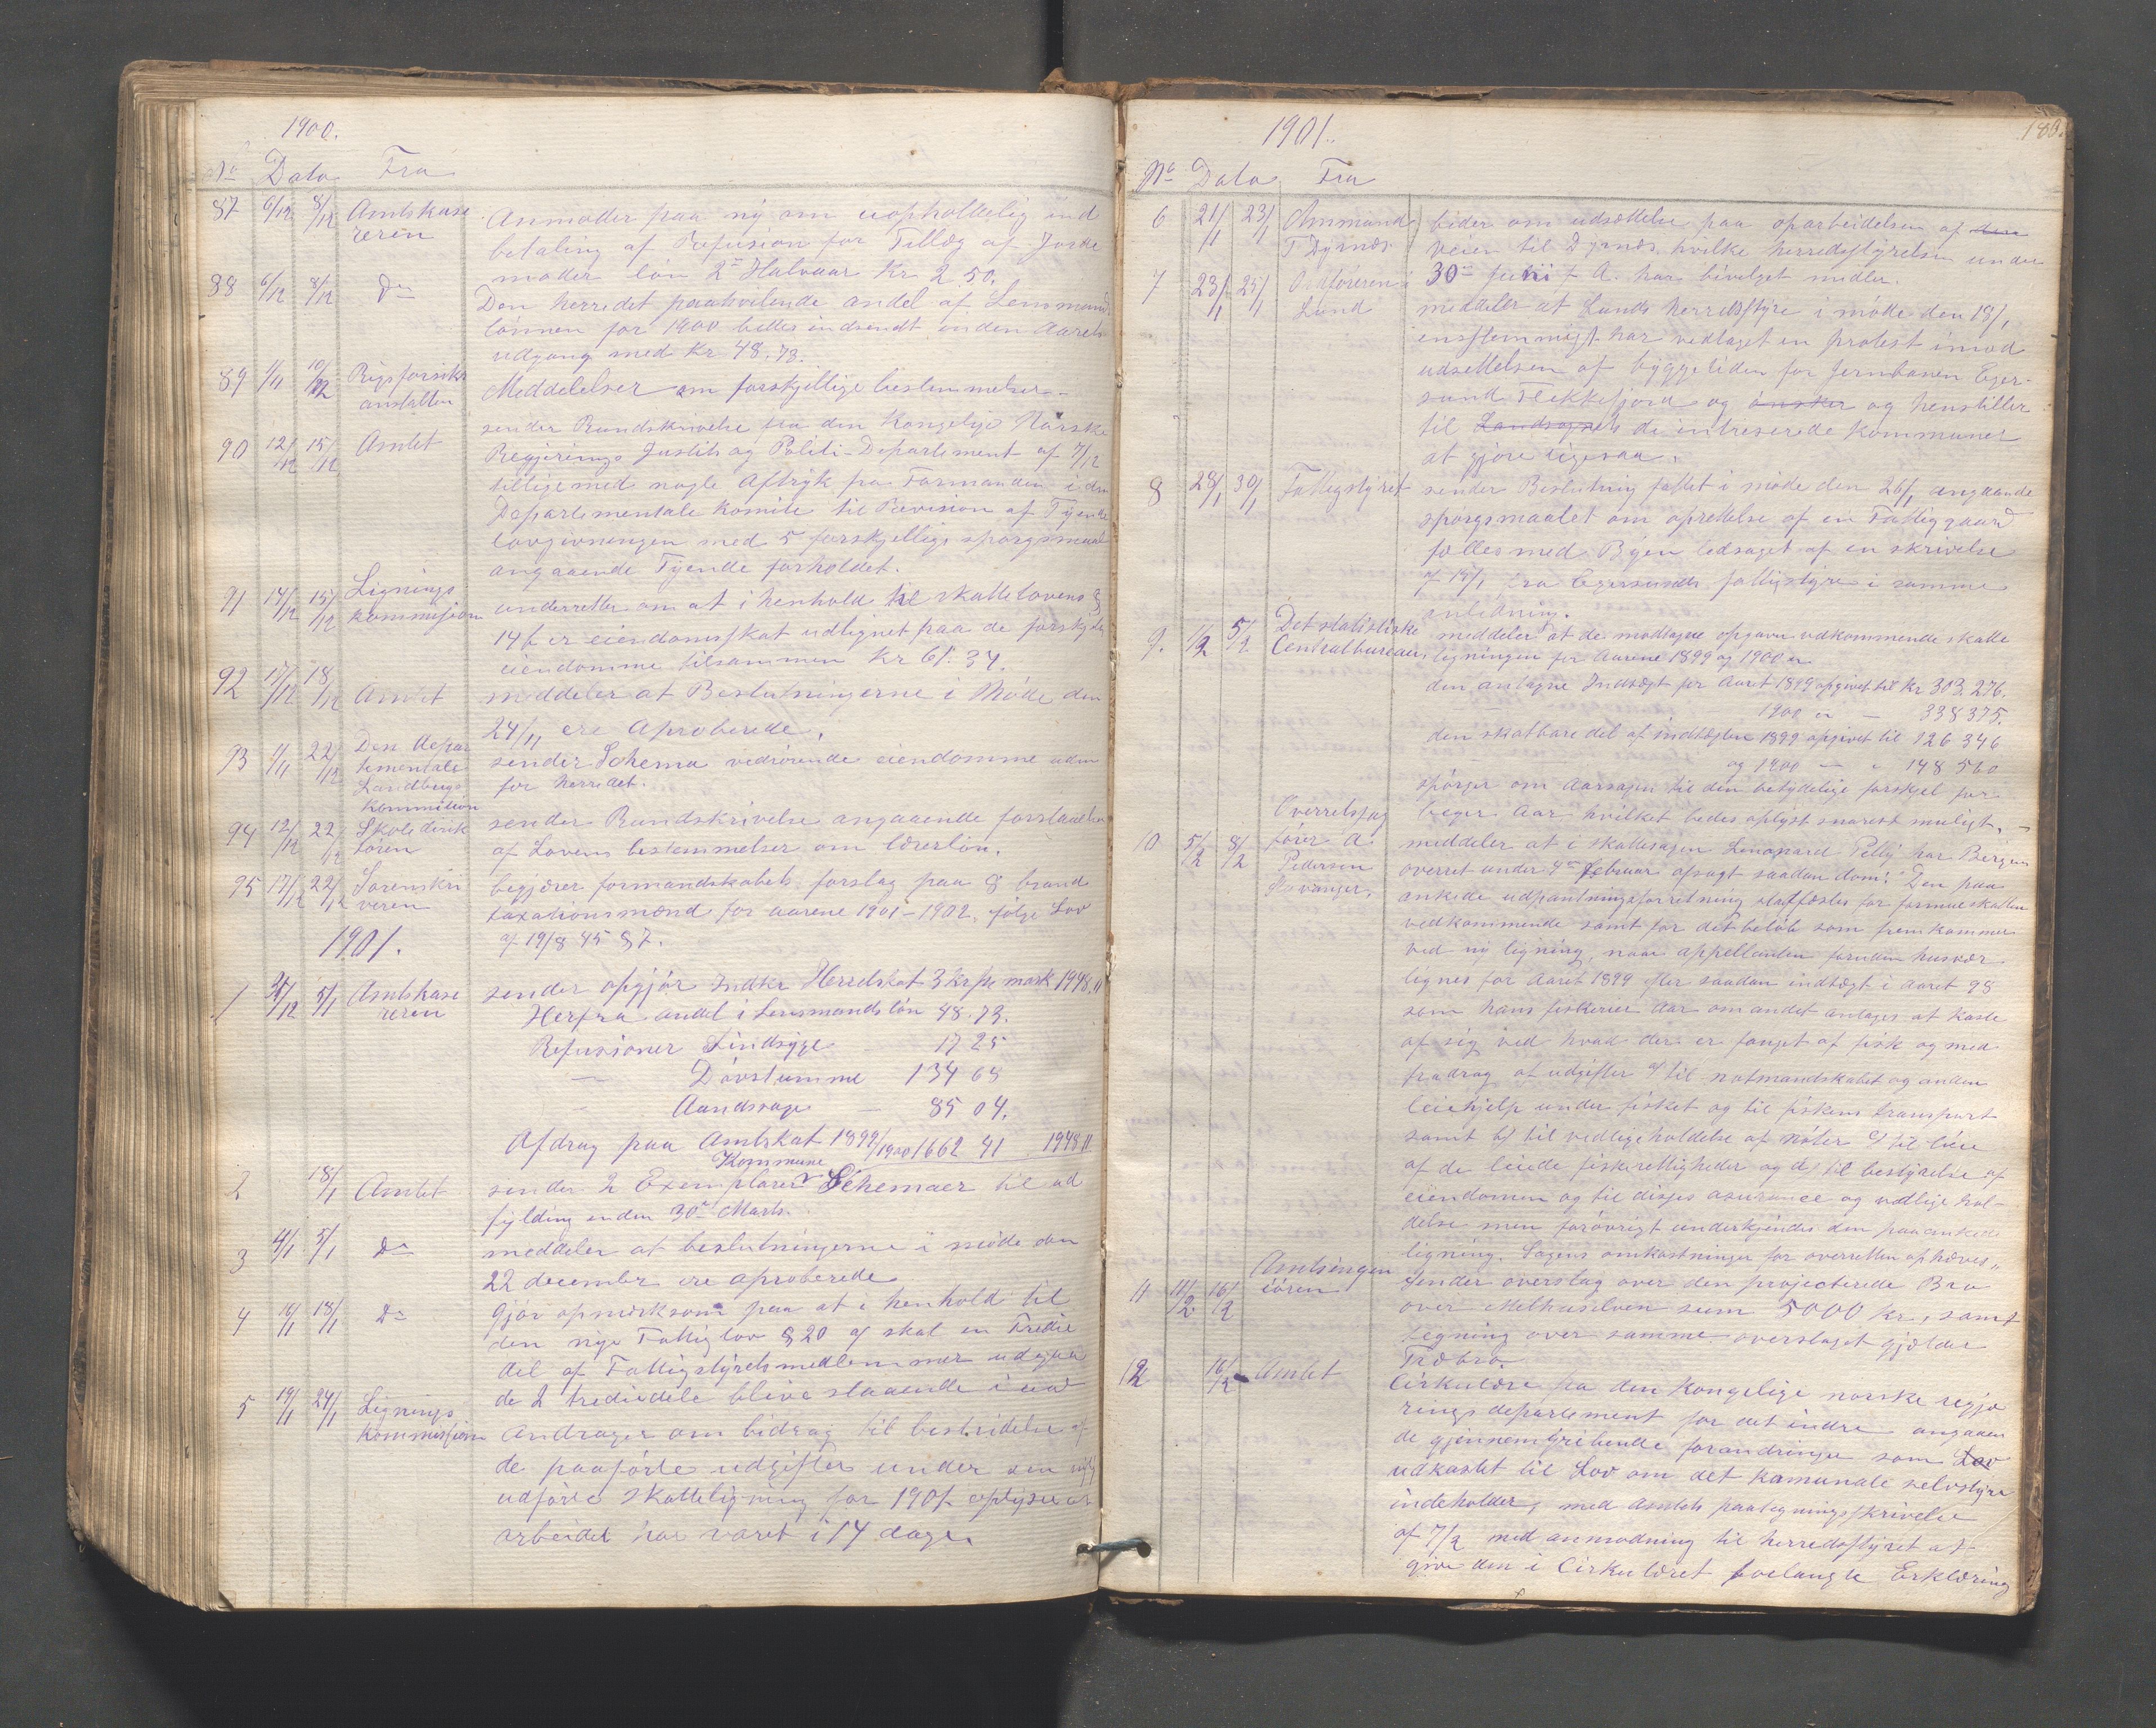 1900.
No Dato Fra
87 6/12 8/12 Amtskase Anmoder paa ny om uopholdelig ind
reren betaling af Refusion for Tillæg af Jorde
moder løn 2n Halvaar Kr 2.50.
88 6/12 8/12 Do Den herredet paahvilende andel af Lensmands
lønnen for 1900 bedes indsendt inden Aarets
udgang med Kr 48.73.
89 1/11 10/12 Rigsforsikr
anstalten Meddelelser om forskjellige bestemmelser.
90 12/12 15/12 Amtet sender Rundskrivelse fra den Kongelige Norske
Regjerings Justits og Politi-Departement af 7/12
tilligemed nogle Aftryk fra Formanden i den
Departementale Komite til Revision af Tyende
lovgivningen med 5 forskjellige spørgsmaal
angaaende Tyende forholdet.
91 14/12 15/12 Lignings
kommisjon underretter om at i henhold til skattelovens §
14 f er eiendomsskat udlignet paa de forskj
eiendomme tilsammen Kr 61.34.
92 17/12 18/12 Amtet meddeler at Beslutningerne i Møde den
24/11 ere Aproberede.
93 1/11 22/12 Den depar
tementale
Landbrugs
kommision sender Schema vedrørende eiendomme uden
for herredet.
94 12/12 22/12 Skoledirik
tøren sender Rundskrivelse angaaende forstaaelsen
af Lovens bestemmelser om lærerløn.
95 17/12 22/12 Sorenskri
veren begjærer formandskabets forslag paa 8 brand
taxationsmænd for aarene 1901-1902, ifølge Lov
af 19/8 45 § 7.
1901.
1 31/12 5/1 Amtskase
reren sender opgjør Indkr Herredskat 3 kr pr mark 1948.11
Herfra andel i Lensmandsløn 48.73.
Refusioner Sindsyge 17 25
— Døvstumme 134 68
Aandssvage — 85 04.
Afdrag paa Amtskat 1899/1900 1662 41 1948 11
2 18/1 Amtet sender 2 Exemplarer Kommune Schemaer til ud
fylding inden 30te Marts.
3 4/1 5/1 Do meddeler at beslutningerne i møde den
22 decembr ere aproberede
4 16/1 18/1 Do Gjør opmerksom paa at i henhold til
den nye Fattiglov § 20 af skal en Tredie
del af Fattigstyrets medlemmer udgaa
de 2 trediedele blive staaende i
5 19/1 24/1 Lignings
kommissjon Andrager om bidrag til bestridelse af
de paaførte udgifter under sin
udførte skatteligning for 1901 oplyser at
arbeidet har varet i 14 dage.
180.
1901.
No Dato Fra
6 21/1 23/1 Ammund
T Dyrnes beder om udsættelse paa oparbeidelsen af den
veien til Dyrnes, hvilke herredsstyrelsen under
30te juni f A. har bevilget midler.
7 23/1 25/1 Ordføreren i
Lund meddeler at Lunds herredsstyre i møde den 18/1
enstemmigt har vedtaget en protest imod
udsettelsen af byggetiden for Jernbanen Eger-
sund Flekkefjord og ønsker og henstiller
til Landsognets de intreserede Kommuner
at gjøre ligesaa.
8 28/1 30/1 Fattigstyret sender Beslutning fattet i møde den 26/1 angaande
spørgsmaalet om oprettelse af en Fattiggaard
fælles med Byen ledsaget af en skrivelse
af 15/1 fra Egersunds fattigstyre i samme
anledning.
9. 1/2 5/2 Det statistiske
Centralbureau, meddeler at de modtagne opgaver vedkommende skatte
ligningen for Aarene 1899 og 1900 er
den antagne Indtægt for Aaret 1899 opgivet til Kr 303.276.
1900 er — 338375.
den skatbare del af indtægten 1899 opgivet til 126 346
og 1900 — " 148 560
spørger om Aarsagen til den betydelige forskjel for
begge Aar hvilket bedes oplyst snarest muligt.
10 5/2 8/2 Overretssag
fører A.
Pedersen
Stavanger, meddeler at i skattesagen Lenopard Pelly har Bergens
overret under 4de februar afsagt saadan dom: "Den paa
ankede udpantningsforretning stadfæstes for formueskatten
vedkommende samt for det beløb som fremkommer
ved ny ligning, naar appellanten foruden husvær
lignes for Aaret 1899 efter saadan indtægt i aaret 98
som hans fiskerier Aar om andet antages at kaste
af sig ved hvad der er fanget af fisk og med
fradrag af udgifter a/ til notmandskabet og anden
leiehjelp under fisket og til fiskens transport
samt b/ til vedligeholdelse af nøter c/ til leie
af de leiede fiskerettigheder og d/ til bestyrelse af
eiendomen og til disses asurance og vedligehol-
delse men forøvrigt underkjendes den paaankede
ligning. Sagens omkostninger for overretten ophæves"
11 11/2 16/2 Amtsingen
iøren Sender overslag over den projecterede Bro
over Melhuselven sum 5000 kr, samt
tegning over samme overslaget gjælder
Træbro.
12 16/2 Amtet Cirkulære fra den Kongelige norske regje
rings departement for det indre angaaen
de gjennemgribende forandringer som Lov
udkastet til Lov om det kommunale selvstyre
indeholder, med Amtets paategningsskrivelse
af 7/2 med anmodning til herredsstyret at
give den i Cirkulæret forlangte Erklæring